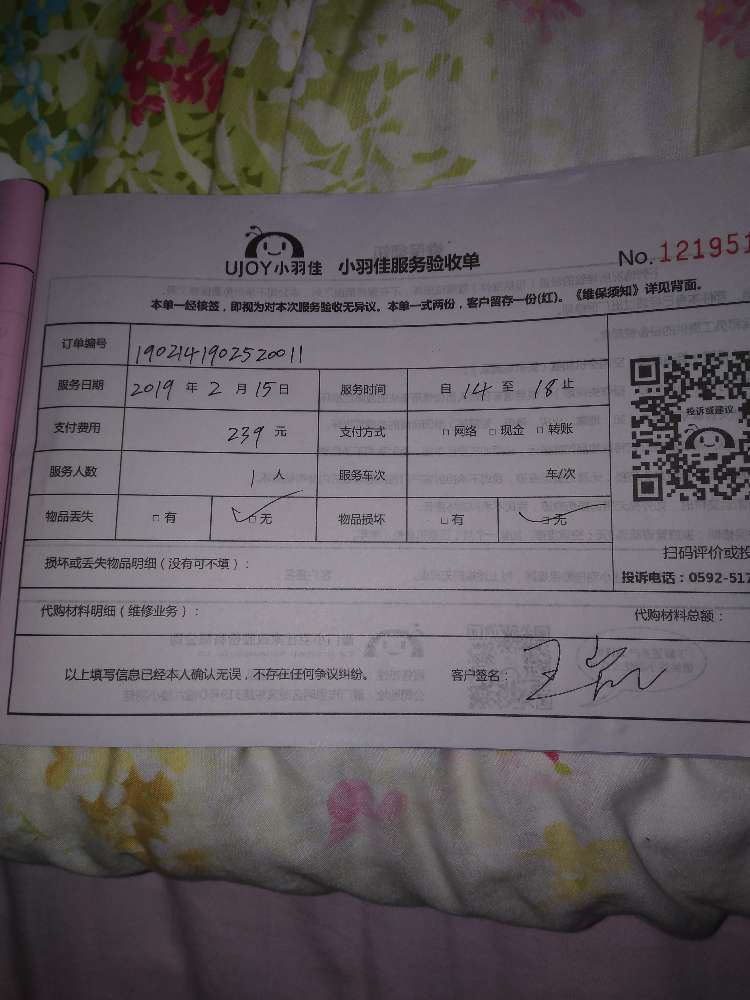 UJOY小羽佳 小羽佳服务验收单 No.121951
本单一经核签，即视为对本次服务验收无异议。本单一式两份，客户留存一份(红)。《维保须知》详见背面。
订单编号 1902141902520011
服务日期 2019 年 2 月 15 日 服务时间 自 14 至 18 止
支付费用 239 元 支付方式 □ 网络 □ 现金 □ 转账
服务人数 1 人 服务车次 车/次
物品丢失 □ 有 □ 无 物品损坏 □ 有 □ 无
投诉或建议
扫码评价或投
损坏或丢失物品明细（没有可不填）：
投诉电话：0592-517
代购材料明细（维修业务）： 代购材料总额：
以上填写信息已经本人确认无误，不存在任何争议纠纷。 客户签名：